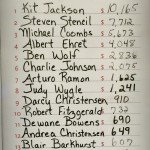 Kit Jackson $ 10,165
2 Steven Stencil $ 7,712
3 Michael Coombs $ 5,673
4 Albert Ehret $ 4,048
5 Ben Wolf $ 2,836
6 Charlie Johnson $ 2,075
7 Arturo Ramon $ 1,625
8 Judy Wygle $ 1,241
9 Darcy Christensen 910
10 Robert Fitzgerald $ 732
Dewaune Bowens $ 690
12 Andrea Christensen $ 649
13 Blair Barkhurst $ 607